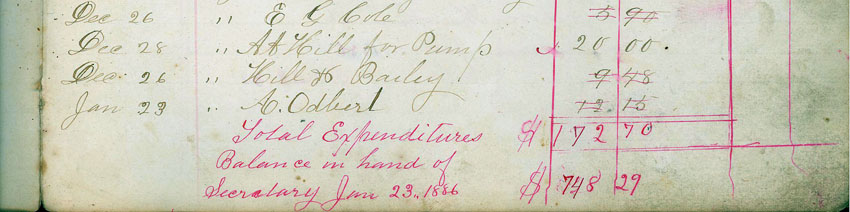 Dec 26 " E G Cole 5 90
Dec 28 " A A Hill for Pump x 20 00.
Dec. 26 " Hill & Bailey 9 48
Jan 23 " A. Odbert 12 15
Total Expenditures $ 172 70
Balance in hand of
Secretary Jan 23., 1886 $ 748 29